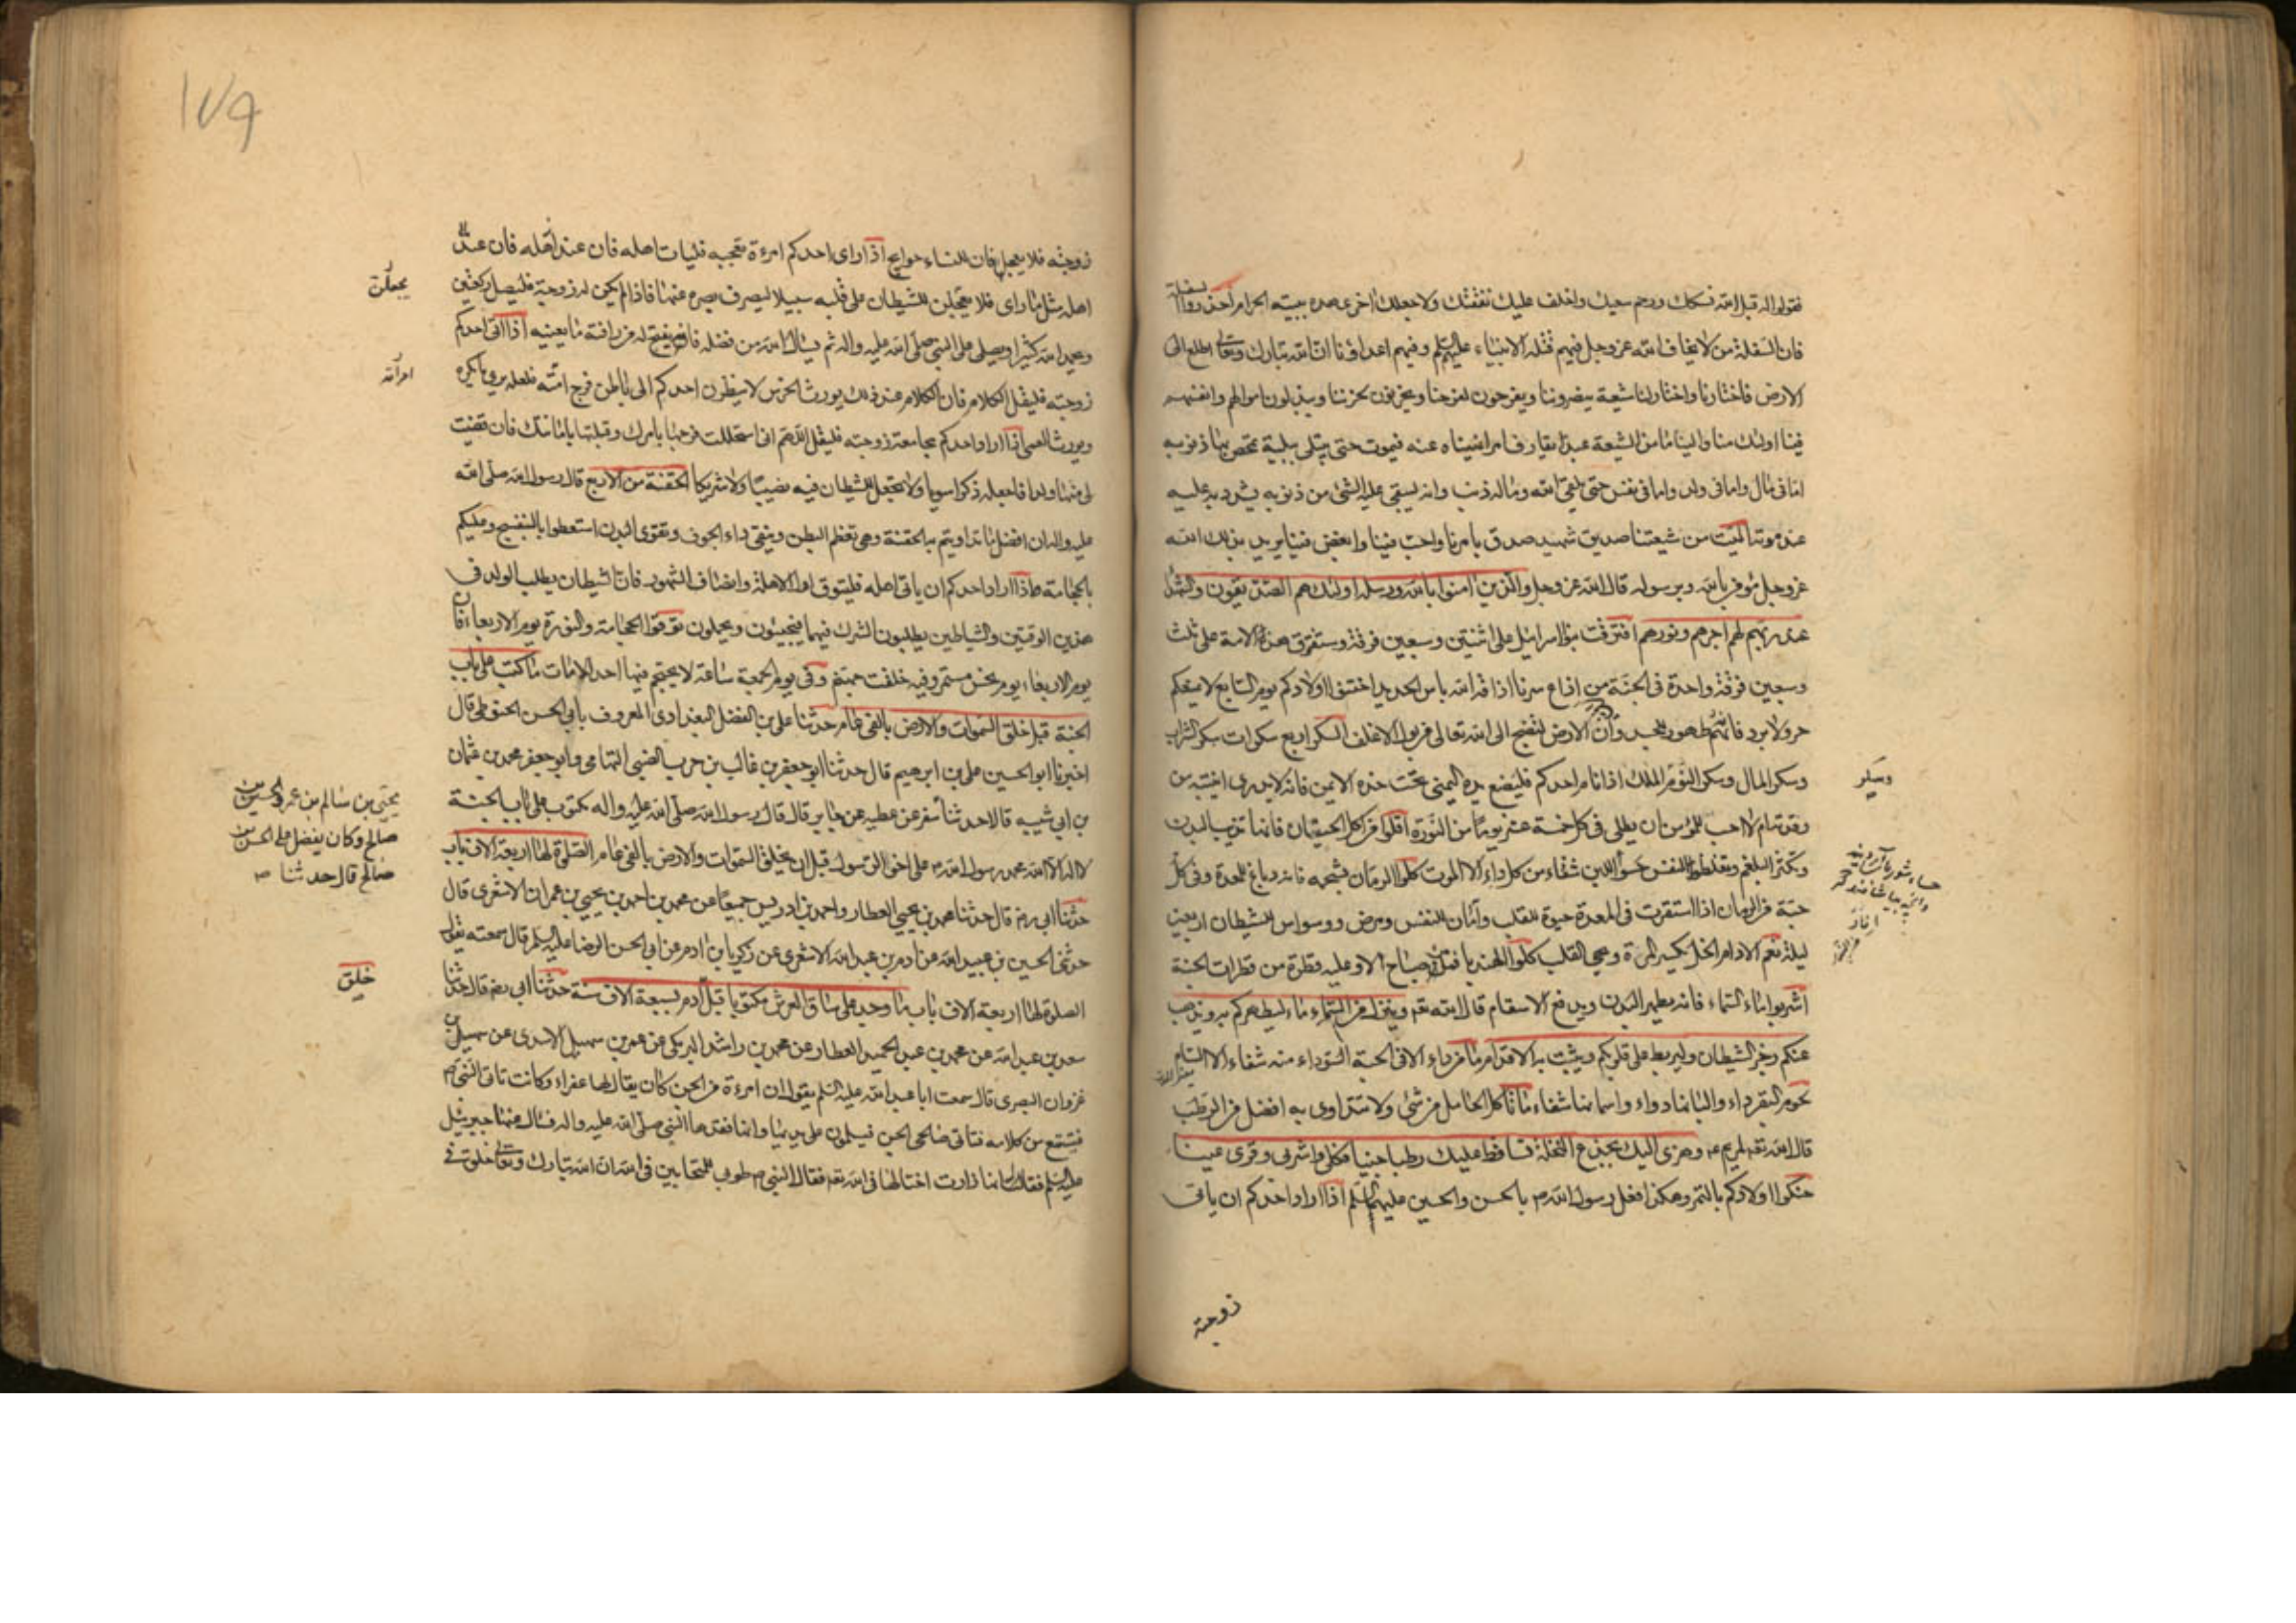 فقولوا له قبل الله نسكك ورحم سعيك واخلف عليك نفقتك ولا جعله اخر عهدك ببيته الحرام احذروا السفلة
فان السفلة من لا يخاف الله عز وجل فيهم قتلة الانبياء عليهم السلم وفيهم اعداؤنا ان الله تبارك وتعالى اطلع الى
الارض فاختارنا واختار لنا شيعة ينصروننا ويفرحون لفرحنا ويحزنون لحزننا ويبذلون اموالهم وانفسهم
فينا اولئك منا والينا ما من الشيعة عبد يقارف امرا نهيناه عنه فيموت حتى يبتلى ببلية تمحص بها ذنوبه
اما فى مال واما فى ولد واما فى نفس حتى يلقى الله وماله ذنب وانه ليبقى عليه الشئ من ذنوبه فيشدد به عليه
عند موته الميت من شيعتنا صديق شهيد صدق بامرنا واحب فينا وابغض فينا يريد بذلك الله
عز وجل مؤمن بالله وبرسوله قال الله عز وجل والذين امنوا بالله ورسله اولئك هم الصديقون والشهداء
عند ربهم لهم اجرهم ونورهم افترقت بنو اسرائيل على اثنتين وسبعين فرقة وستفترق هذه الامة على ثلث
وسبعين فرقة واحدة فى الجنة من اذاع سرنا اذاقه الله باس الحديد اختنوا اولادكم يوم السابع لا يمنعكم
حر ولا برد فانه طهور للجسد وان الارض لتضج الى الله تعالى من بول الاغلف السكر اربع سكرات سكر الشراب
وسكر المال وسكر النوم وسكر الملك اذا نام احدكم فليضع يده اليمنى تحت خده الايمن فانه لا يدرى اينتبه من
رقدته ام لا احب للمؤمن ان يطلى فى كل خمسة عشر يوما من النورة اقلوا من اكل الحيتان فانها تذيب البدن
وتكثر البلغم وتغلظ النفس حسو اللبن شفاء من كل داء الا الموت كلوا الرمان بشحمه فانه دباغ للمعدة وفى كل
حبة من الرمان اذا استقرت فى المعدة حيوة للقلب وامان للنفس ومرض وسواس الشيطان اربعين
ليلة نعم الادام الخل يكسر المرة ويحيى القلب كلوا الهندباء فما من صباح الا وعليه قطرة من قطرات الجنة
اشربوا ماء السماء فانه يطهر البدن ويدفع الاسقام قال الله تعه وينزل من السماء ماء ليطهركم به ويذهب
عنكم رجز الشيطان وليربط على قلوبكم ويثبت به الاقدام ما من داء الا فى الحبة السوداء منه شفاء الا السام
لحوم البقر داء والبانها دواء واسمانها شفاء ما تاكل الحامل من شئ ولا تتداوى به افضل من الرطب
قال الله تعه لمريم ع وهزى اليك بجذع النخلة تساقط عليك رطبا جنيا فكلى واشربى وقرى عينا
حنكوا اولادكم بالتمر وهكذا فعل رسول الله ص بالحسن والحسين عليهما السلم اذا اراد احدكم ان ياتى
زوجته
وسكر
١٧٩
زوجته فلا يعجلها فان للنساء حوايج اذا راى احدكم امرءة تعجبه فليات اهله فان عند اهله
اهله مثل ما راى فلا يجعلن للشيطان على قلبه سبيلا ليصرف بصره عنها فاذا لم يكن له زوجة فليصل ركعتين
ويحمد الله كثيرا ويصلى على النبى صلى الله عليه واله ثم يسال الله من فضله فانه يفتح له من رافته ما يغنيه اذا اتى احدكم
زوجته فليقل الكلام فان الكلام عند ذلك يورث الخرس لا ينظرن احدكم الى باطن فرج امراته فلعله يرى ما يكره
ويورث العمى اذا اراد احدكم مجامعة زوجته فليقل اللهم انى استحللت فرجها بامرك وقبلتها بامانتك فان قضيت
لى منها ولدا فاجعله ذكرا سويا ولا تجعل للشيطان فيه نصيبا ولا شريكا الحقنة من الاربع قال رسول الله صلى الله
عليه واله ان افضل ما تداويتم به الحقنة وهى تعظم البطن وتنقى داء الجوف وتقوى البدن استعطوا بالبنفسج وعليكم
بالحجامة اذا اراد احدكم ان ياتى اهله فليتوق اول الاهلة وانصاف الشهور فان الشيطان يطلب الولد فى
هذين الوقتين والشياطين يطلبون الشرك فيهما فيجيئون ويحبلون توقوا الحجامة والنورة يوم الاربعاء فان
يوم الاربعاء يوم نحس مستمر وفيه خلقت جهنم وفى يوم الجمعة ساعة لا يحتجم فيها احد الا مات ما كتب على باب
الجنة قبل خلق السموات والارض بالفى عام حدثنا على بن الفضل البغدادى المعروف بابى الحسن الحنوطى قال
اخبرنا ابو الحسين على بن ابرهيم قال حدثنا ابو جعفر بن غالب بن حرب الضبى التمتامى وابو جعفر محمد بن عثمان
بن ابى شيبه قالا حدثنا مسعر عن عطيه عن جابر قال قال رسول الله صلى الله عليه واله مكتوب على باب الجنة
لا اله الا الله محمد رسول الله ص على اخو الرسول قبل ان يخلق السموات والارض بالفى عام الصلوة لها اربعة الاف باب
حدثنا ابى رضه قال حدثنا محمد بن يحيى العطار واحمد بن ادريس جميعا عن محمد بن احمد بن يحيى بن عمران الاشعرى قال
حدثنى الحسين بن عبيد الله عن ادم بن عبد الله الاشعرى عن زكريا بن ادم عن ابى الحسن الرضا عليه السلم قال سمعته يقول
الصلوة لها اربعة الاف باب ما وجد على ساق العرش مكتوبا قبل ادم بسبعة الاف سنة حدثنا ابى رضه قال حدثنا
سعد بن عبد الله عن محمد بن عبد الحميد العطار عن محمد بن راشد البرمكى عن عمر بن سهيل الاسدى عن سهيل بن
غزوان البصرى قال سمعت ابا عبد الله عليه السلم يقول ان امرءة من الجن كان يقال لها عفراء وكانت تاتى النبى ص
فتسمع من كلامه فتاتى صالحى الجن فيسلمون على يديها وانها فقدها النبى صلى الله عليه واله فسال عنها جبرئيل
عليه السلم فقال انها زارت اختا لها فى الله تعه فقال النبى ص طوبى للمتحابين فى الله ان الله تبارك وتعالى خلق فى
يجعلن
امراته
يحيى بن سالم بن عم الحسن بن
صالح وكان يفضل على الحسن بن
صالح قال حدثنا ص
خلق